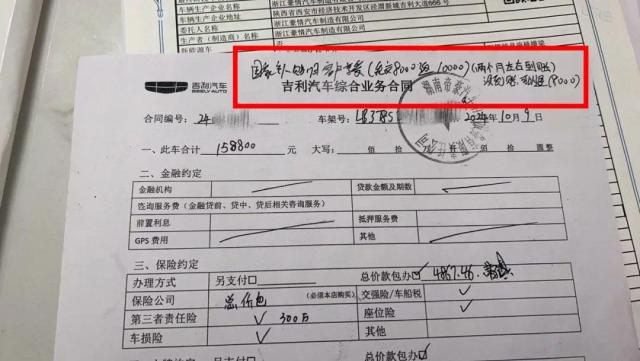 车辆生产企业名称 浙江豪情汽车制造有限公司
车辆生产企业地址 陕西省西安市经济技术开发区泾渭新城吉利大道666号
委托人名称 浙江豪情汽车制造有限公司
生产者（制造商）名称 浙江豪情汽车制造有限公司
新能源车
吉利汽车
GEELY AUTO
(两个月左右到账)
吉利汽车综合业务合同
合同编号： 24 车架号： LB37 2024年10月9日
一、此车合计 158800 元 大写： 佰 拾 万 仟 佰 拾 圆整
二、金融约定
金融机构 贷款金额及期数
咨询服务费（金融贷前、贷中、贷后相关咨询服务）
前置利息 抵押服务费
GPS 费用 其他
三、保险约定
办理方式 另支付口 总价款包办 4867.46
保险公司 总价包 (必须本店购买) 交强险/车船税 ✓
第三者责任险 ✓ 300万 座位险 ✓
车损险 ✓ 其他